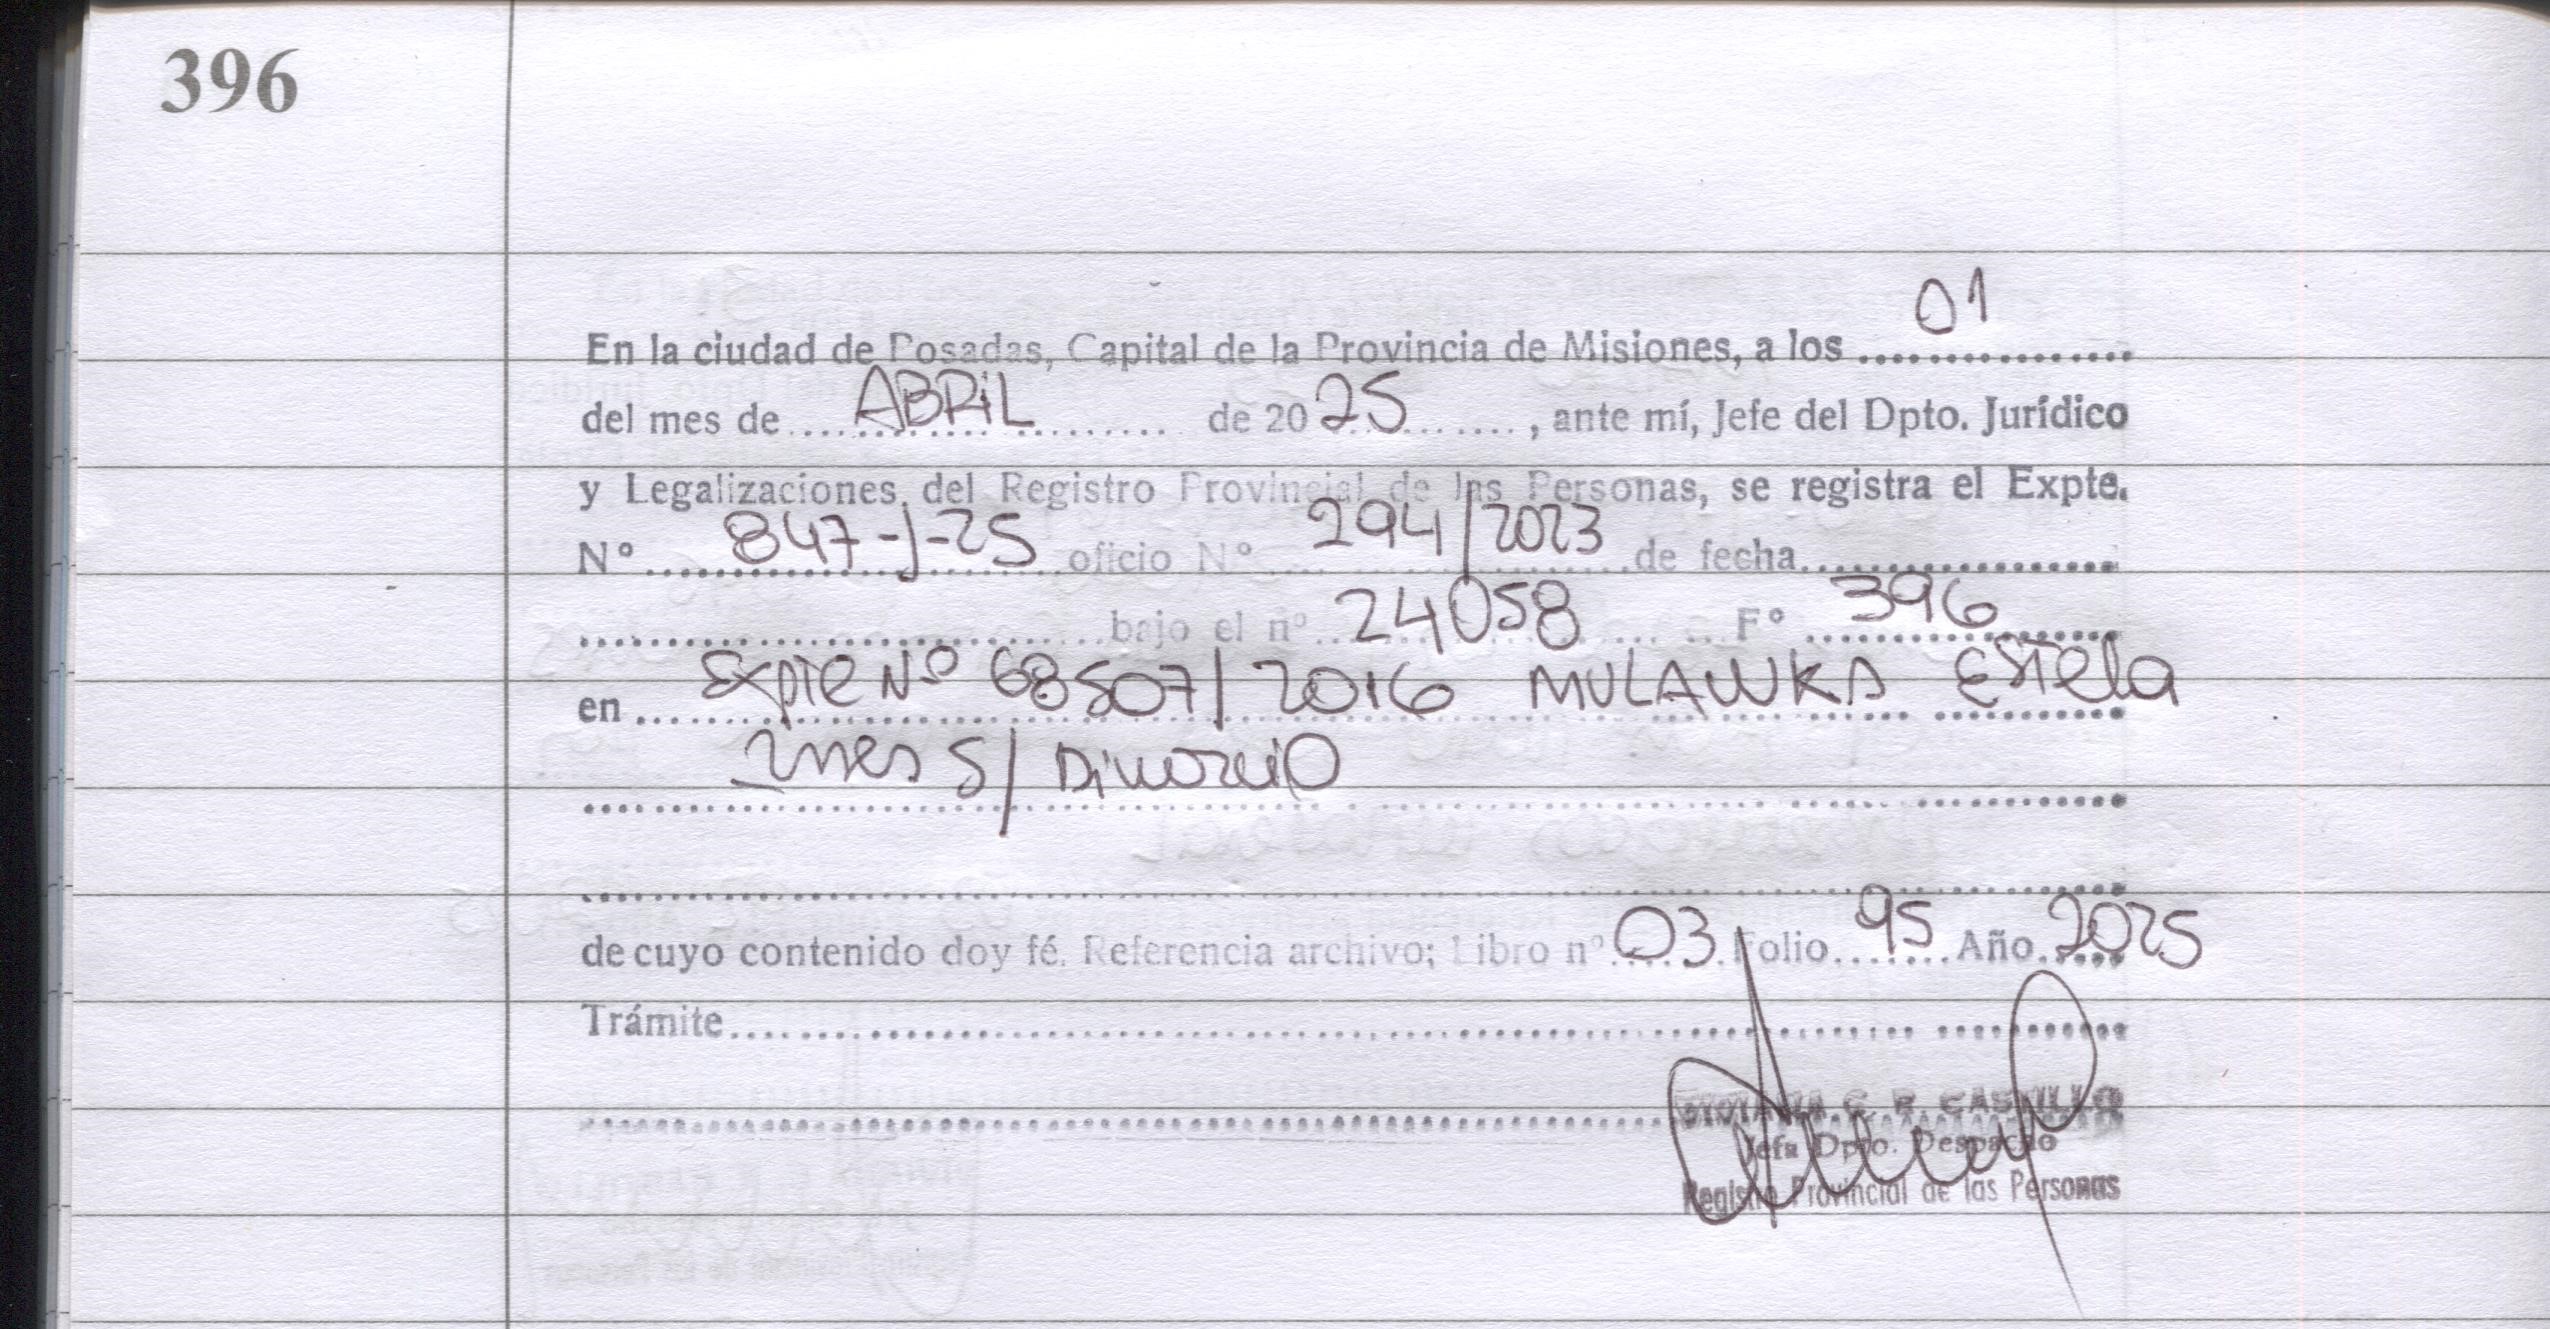 396
En la ciudad de Posadas, Capital de la Provincia de Misiones, a los 01
del mes de ABRIL de 2025, ante mí, Jefe del Dpto. Jurídico
y Legalizaciones del Registro Provincial de las Personas, se registra el Expte.
N° 847-J-25 oficio N° 294/2023 de fecha
bajo el n° 24058 F° 396
en Expte Nº 68507/2016 MULAWKA Estela
Ines S/ Divorcio
de cuyo contenido doy fé. Referencia archivo; Libro n° 03 Folio 95 Año 2025
Trámite
C. R. CASTILLO
Jefa Dpto. Despacho
Registro Provincial de las Personas